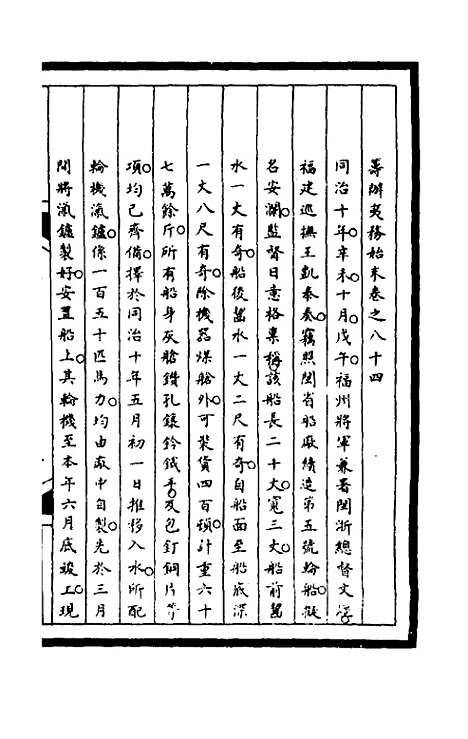 籌辦夷務始末卷之八十四
同治十年辛未十月戊午福州將軍兼署閩浙總督文
福建巡撫王凱泰奏竊照閩省船廠續造第五號輪船擬
名安瀾監督日意格稟稱該船長二十丈寬三丈船前喫
水一丈有奇船後喫水一丈二尺有奇自船面至船底深
一丈八尺有奇除機器煤艙外可裝貨四百頓計重六十
七萬餘斤所有船身灰艙鑽孔鑲鈐鐵及包釘銅片等
項均已齊備擇於同治十年五月初一日推移入水所配
輪機滊鑪係一百五十匹馬力均由廠中自製先於三月
間將滊鑪製好安置船上其輪機至本年六月底竣工現